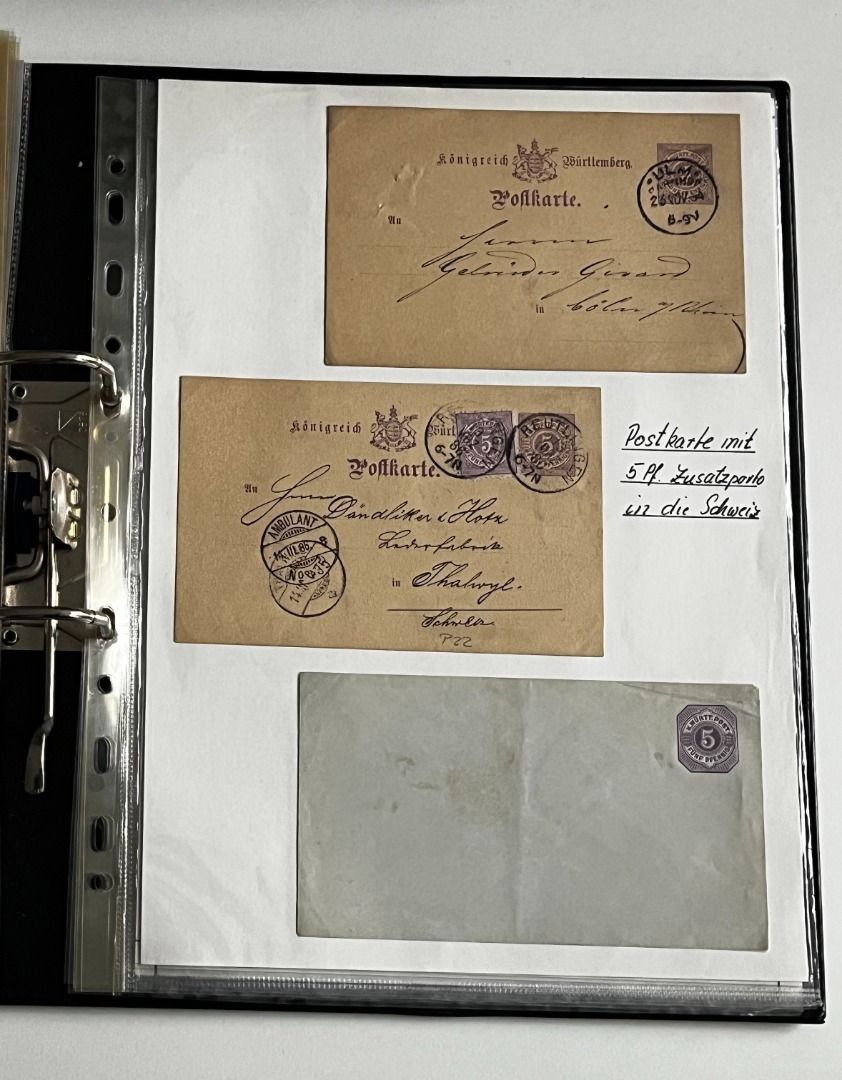 Königreich Württemberg.
Postkarte.
An
ULM
26 NOV 84
Herrn
Gebrüder Girard
in Cöln a/Rhein
Königreich Württ
Postkarte.
5
5
REUTLINGEN
6-7N
An
Herrn Dändliker & Hotz
Lederfabrik
in Thalwyl.
Schweiz
P22
AMBULANT
No
Postkarte mit
5 Pf. Zusatzporto
in die Schweiz
K. WÜRTT. POST
5
FÜNF PFENNIG